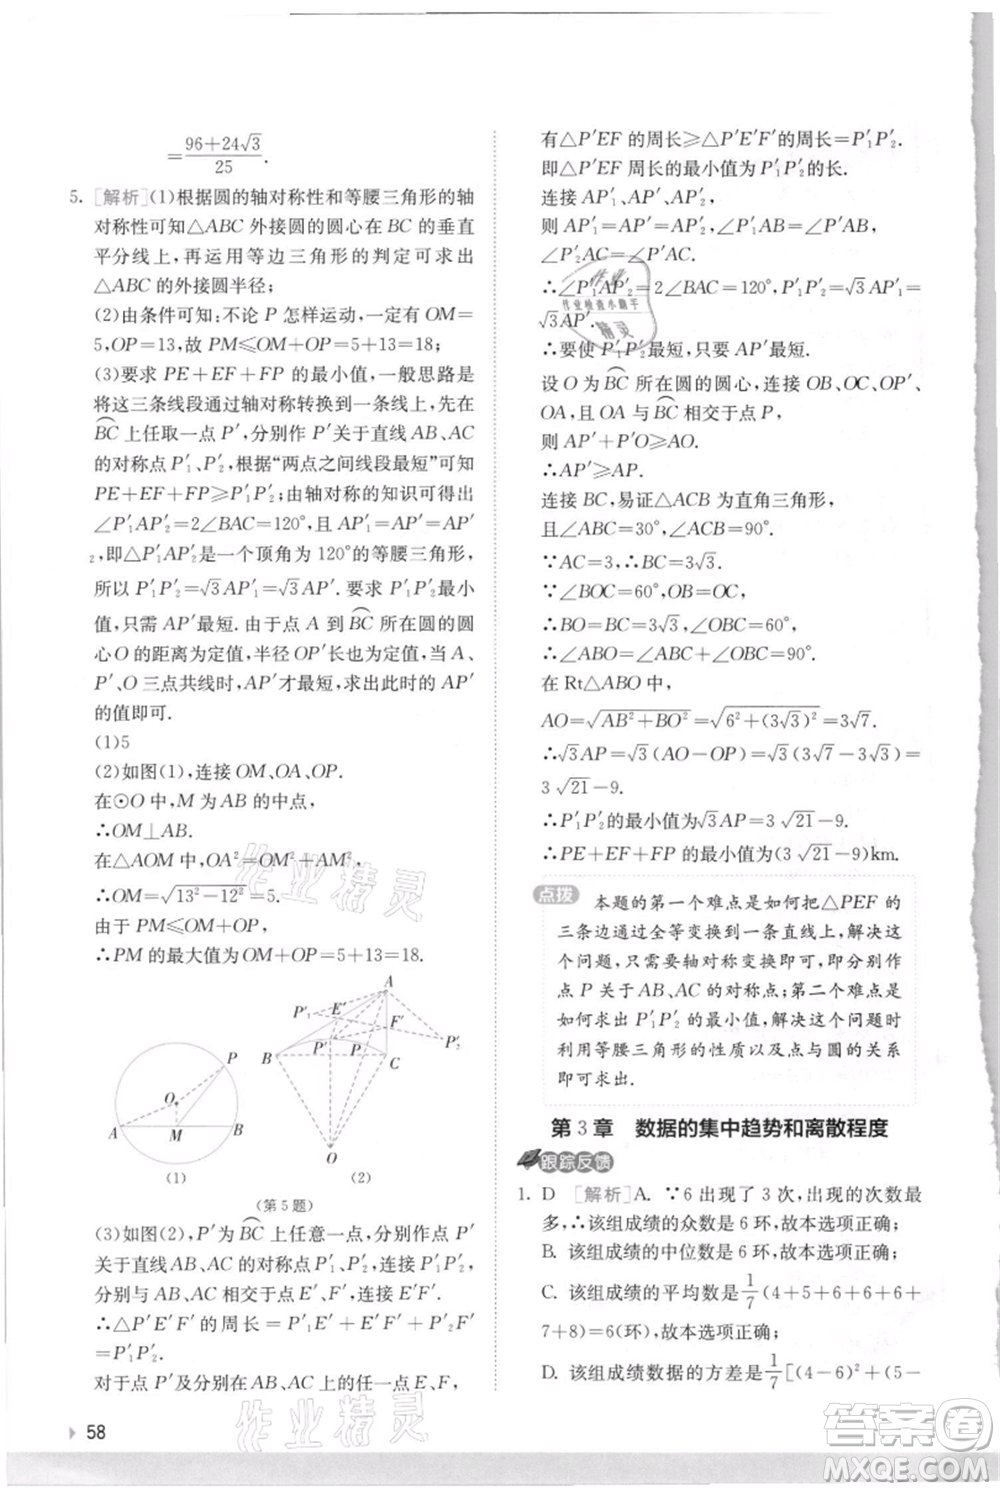 =(96+24√3)/25.
5. [解析](1)根据圆的轴对称性和等腰三角形的轴
对称性可知△ABC 外接圆的圆心在 BC 的垂直
平分线上，再运用等边三角形的判定可求出
△ABC 的外接圆半径；
(2)由条件可知：不论 P 怎样运动，一定有 OM=
5,OP=13,故 PM≤OM+OP=5+13=18;
(3)要求 PE+EF+FP 的最小值,一般思路是
将这三条线段通过轴对称转换到一条线上,先在
B͡C 上任取一点 P′,分别作 P′关于直线 AB、AC
的对称点 P′₁、P′₂,根据“两点之间线段最短”可知
PE+EF+FP≥P′₁P′₂,由轴对称的知识可得出
∠P′₁AP′₂=2∠BAC=120°,且 AP′₁=AP′=AP′
₂,即△P′₁AP′₂是一个顶角为 120°的等腰三角形,
所以 P′₁P′₂=√3AP′₁=√3AP′.要求 P′₁P′₂最小
值,只需 AP′最短.由于点 A 到B͡C所在的圆的圆
心 O 的距离为定值,半径 OP′长也为定值,当 A、
P′、O 三点共线时,AP′才最短,求出此时 AP′
的值即可.
(1)5
(2)如图(1),连接 OM、OA、OP.
在⊙O 中,M 为 AB 的中点,
∴OM⊥AB.
在△AOM 中,OA²=OM²+AM²,
∴OM=√(13²-12²)=5.
由于 PM≤OM+OP,
∴PM 的最大值为 OM+OP=5+13=18.
A
P′₁
E′
F′
P′
P′₂
B
C
P
O
A
M
B
O
(1)
(2)
(第 5 题)
(3)如图(2),P′为B͡C上任意一点,分别作点 P′
关于直线 AB、AC 的对称点 P′₁、P′₂,连接 P′₁P′₂,
分别与 AB、AC 相交于点 E′、F′,连接 P′E′、P′F′.
∴△P′E′F′的周长=P′₁E′+E′F′+P′₂F′=
P′₁P′₂.
对于点 P′及分别在 AB、AC 上的任意点 E、F,
58
有△P′EF 的周长≥△P′E′F′的周长=P′₁P′₂.
∴△P′EF 周长的最小值为 P′₁P′₂的长.
连接 AP′₁、AP′、AP′₂,
则 AP′₁=AP′=AP′₂.
∴∠P′₁AP′₂=2∠BAC=120°,P′₁P′₂=√3AP′₁=
√3AP′.
∴要使 P′₁P′₂最短,只要 AP′最短.
设 O 为B͡C所在圆的圆心,连接 OB、OC、OP′、
OA,且 OA 与B͡C相交于点 P,
则 AP′+P′O≥AO.
∴AP′≥AP.
连接 BC,易证△ACB 为直角三角形,
且∠ABC=30°,∠ACB=90°.
∵AC=3,∴BC=3√3.
∵∠BOC=60°,
∴BO=BC=3√3,∠OBC=60°.
∴∠ABO=∠ABC+∠OBC=90°.
在 Rt△ABO 中,
AO=√(AB²+BO²)=√(6²+(3√3)²)=3√7.
∴√3AP=√3(AO-OP)=√3(3√7-3√3)=
3√21-9.
∴P′₁P′₂的最小值为√3AP=3√21-9.
∴PE+EF+FP 的最小值为(3√21-9)km.
点拨
本题的第一个难点是如何把△PEF 的
三条边通过全等变换到一条直线上,解决这
个问题,只需要轴对称变换即可,即分别作
点 P 关于 AB、AC 的对称点;第二个难点是
如何求出 P′₁P′₂的最小值,解决这个问题时
利用等腰三角形的性质以及点与圆的关系
即可求出.
第 3 章 数据的集中趋势和离散程度
跟踪反馈
1. D [解析]A. ∵6 出现了 3 次,出现的次数最
多,∴该组成绩的众数是 6 环,故本选项正确;
B. 该组成绩的中位数是 6 环,故本选项正确;
C. 该组成绩的平均数是1/7(4+5+6+6+6+
7+8)=6(环),故本选项正确;
D. 该组成绩数据的方差是1/7[(4-6)²+(5-
作业
作业检查小助手
精灵
作业精灵
作业精灵
答案圈
MXQE.COM